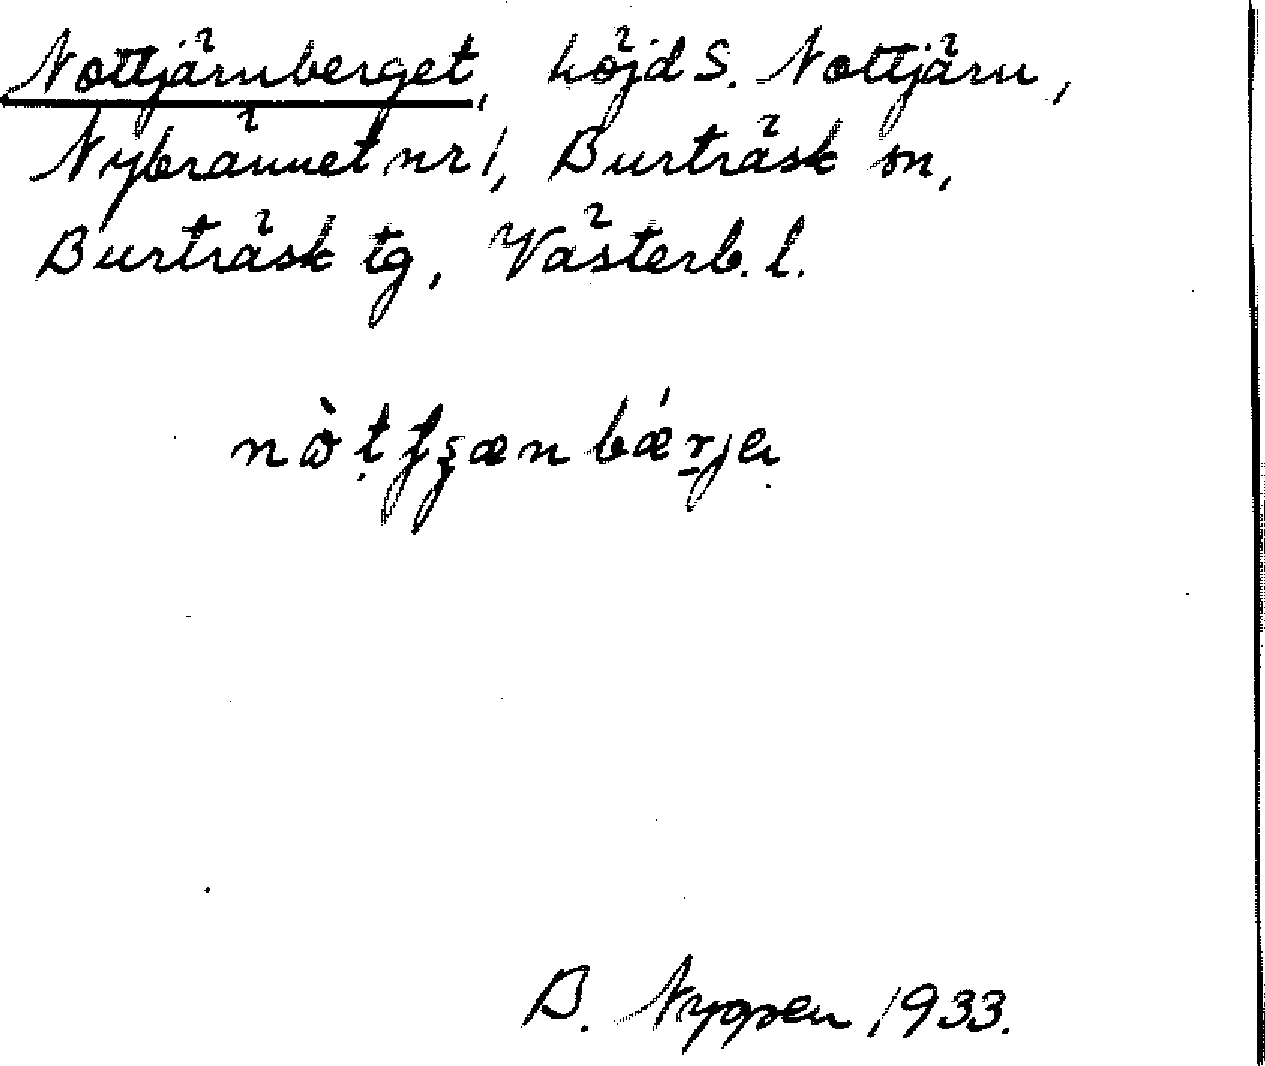 Nottjärnberget, höjd S. Nottjärn,
Nybrännet nr 1, Burträsk sn,
Burträsk tg, Västerb. l.
B. Nyppen 1933.